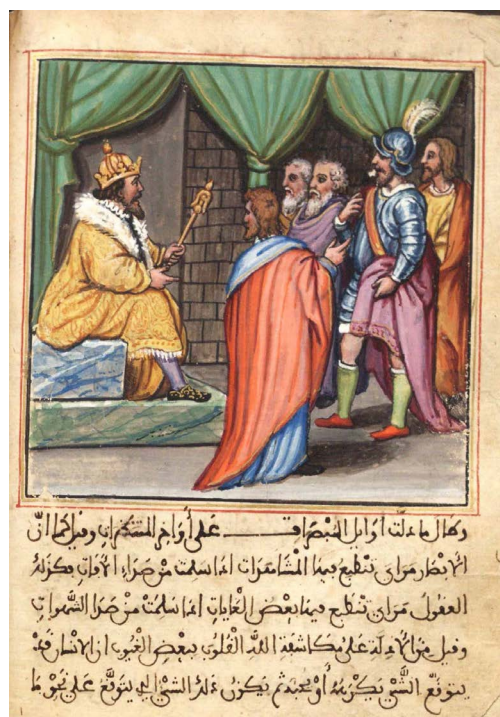 ما دلت أوايل على أواخر وقيل كما انّ
الابصار مراى تنطبع فيها المشاهدات اذا سلمت من صداء الافات فكذلك
العقول مراى تنطبع فيها بعض الغايبات اذا سلمت من صدا الشهوات
وقيل من الادلة على مكاشفة الله القلوب ببعض الغيوب ان الانسان
يتوقّع الشي يكرهه أو يحبه ثم يكون ذلك الشي يتوقّع على نحو ما